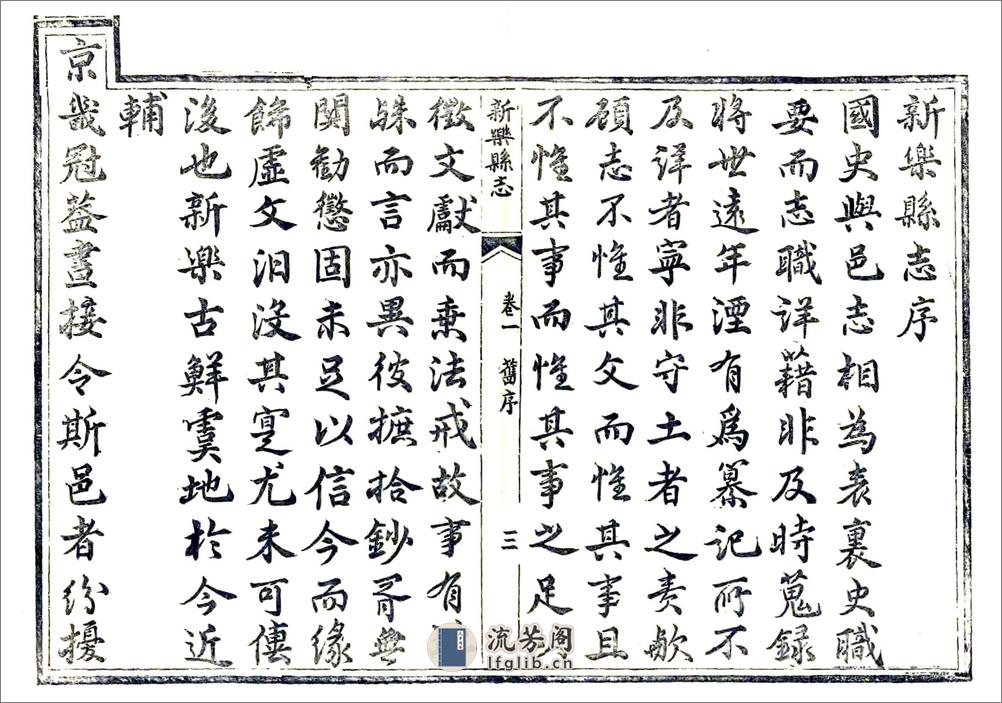 新樂縣志序
國史與邑志相為表裏史職
要而志職詳藉非及時蒐録
將世遠年湮有爲纂記所不
及詳者寧非守土者之責歟
顧志不惟其文而惟其事且
不惟其事而惟其事之足
新樂縣志
卷一
舊序
三
徵文獻而垂法戒故事有
殊而言亦異彼摭拾鈔胥無
関勸懲固未足以信今而緣
飾虛文汨沒其寔尤未可傳
後也新樂古鮮虞地於今近
輔
京畿冠蓋晝接令斯邑者紛擾
流芳阁
lfglib.cn